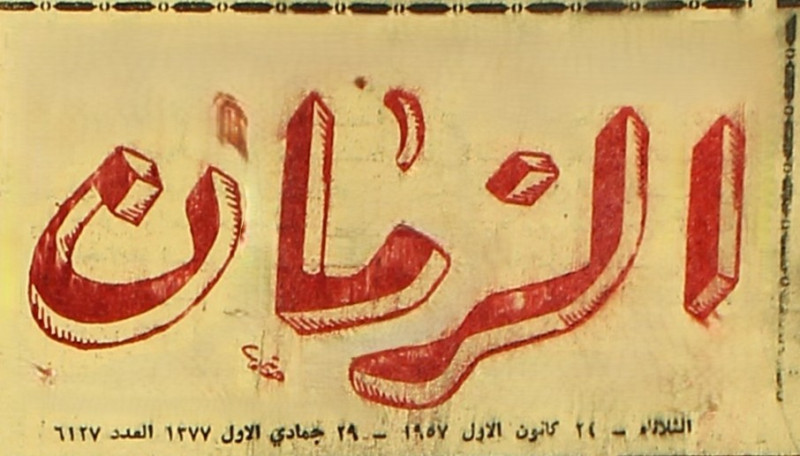 الزمان
الثلاثاء - ٢٤ كانون الاول ١٩٥٧ - ٢٩ جمادي الاول ١٣٧٧ العدد ٦١٢٧